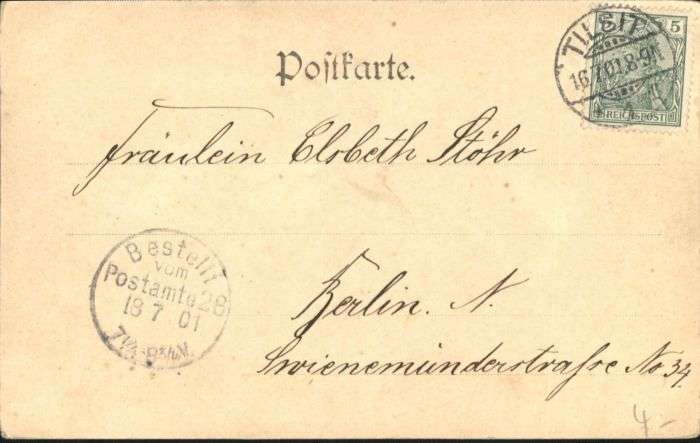 5
REICHSPOST
TILSIT
16.7.01.8-9N.
Postkarte.
Fräulein Elsbeth Stöhr
Bestellt
vom
Postamte 28
18 7 01
Berlin. N.
Swienemünderstrasse No 34.
4-